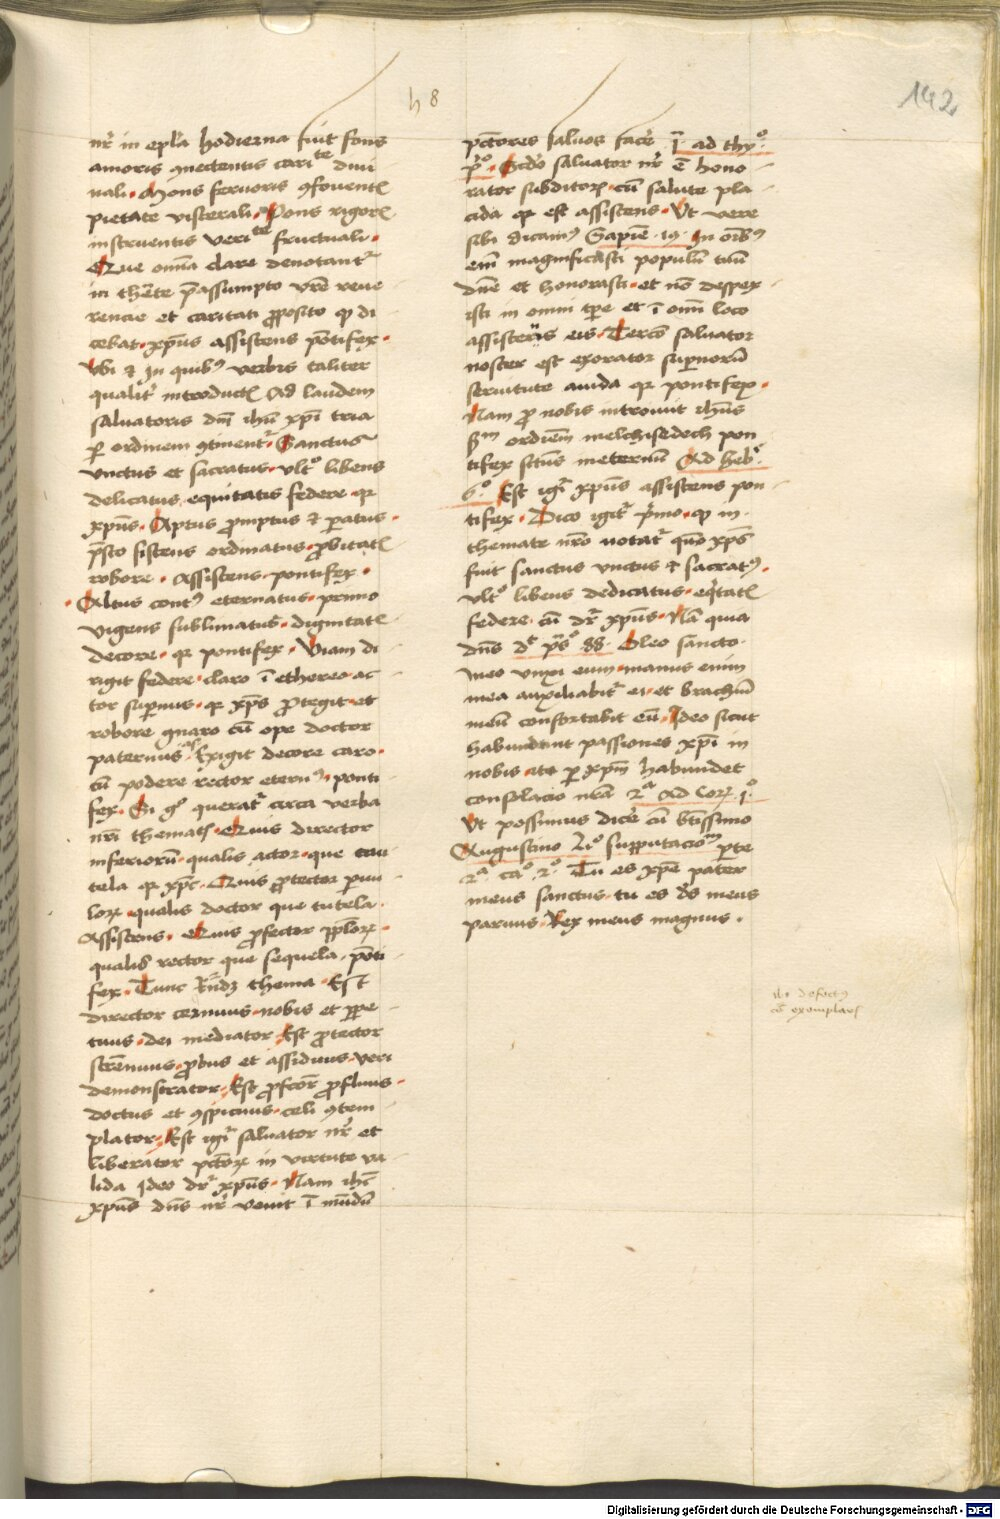 h 8
142
nr̄ in epl̄a hodierna fuit fons
amoris ꝯnectentis caritate diui
nali · Mons feruoris ꝯfouentꝭ
pietate viscerali · Pons rigorꝭ
instruentis veritate fructuali ·
Que om̄ia clare denotantᷣ
in them̄te p̄assumpto vr̄e reue
rencie et caritati ꝓposito ꝙ di
cebat · xp̄us assistens pōtifex ·
Vbi ⁊ in quibꝰ verbis taliter
qualitᷣ introductꝭ Ad laudem
saluatoris dn̄i ihū xp̄i tria
ꝑ ordinem ꝯtinentᷣ · Sanctus
vnctus et sacratus · vltº libens
delicatus equitatis federe · qꝛ
xp̄us · Aptus ꝓmptus ⁊ ꝑatus ·
p̄sto sistens ordinatus · ꝓbitatꝭ
robore · Assistens · pontifex ·
Altus contꝰ eternatus · primo
vigens sublimatus · dignitatꝭ
decore · qꝛ pontifex · Viam di
rigit federe · claro ī ethereo ac
tor suꝑnus · qꝛ xp̄s ꝓtegit · et
robore gnaro cū ope doctor
paternus · Exigit decore caro ·
cū podere rector eternꝰ · ponti
fex · Si gº queratᷣ circa verba
nr̄i thematꝭ · Quis director
inferiorū · qualis actor · que cau
tela qꝛ xp̄c · Quis ꝓtector ꝑuu
loꝝ · qualis doctor que tutela ·
Assistens · Quis ꝓfector
qualis rector que sequela · pōti
fex · Tunc Rn̄dꝫ thema · Est
director cernuus · nobis et ꝑpe
tuus · dei mediator · Est ꝓtector
strēnuus · ꝓbus et assiduus · veri
demonstrator · Est ꝓfcōr ꝓfluus ·
doctus et ꝯspicuus · celi ꝯtem
plator · Est igiᷣ saluator nr̄ et
liberator pctōꝝ in virtute va
lida Ideo drᷣ xp̄us · Nam ihc̄
xp̄us dn̄s nr̄ venit ī mūdū
pctōres saluos facēr · ī ad thyº
pº · Scdō saluator nr̄ ē hono
rator subditoꝝ · cū salute pla
cida qꝛ est assistens · Vt vere
sibi dicamꝰ Sapiē · 19 · In om̄ibꝰ
em̄ magnificasti populū tuū
dn̄e et honorasti · et nō despex
isti in omni tp̄e et ī om̄i loco
assistens eis · Tercō saluator
noster est exorator suꝑnorū
seruitute auida qꝛ pontifex ·
Nam ꝓ nobis introiuit ihūs
scdm ordinem melchisedech pon
tifex factus in eternū Ad heb̄ ·
6º · Est igiᷣ xp̄us assistens pon
tifex · Dico igitᷣ p̄mo · ꝙ in
themate nr̄o notatᷣ quō xp̄s
fuit sanctus vnctus ⁊ sacratꝰ ·
vltº libens dedicatus · eq̄tatꝭ
federe · cū drᷣ xp̄us · Nā quia
dn̄s dt p̄s · 88 · Oleo sancto
meo vnxi eum · manus enim
mea auxiliabitᷣ ei · et brachiū
meū confortabit eū · Ideo sicut
habundant passiones xp̄i in
nobis · ita ꝑ xp̄m habundet
consolacio nr̄a 2ª ad Coꝝ · 1º
Vt possimus dicēr cū btīssimo
Augustino Liº supputaciom ꝑte
2ª caº 2º · Tu es xp̄e pater
meus sanctus · tu es ds̄ meus
paruus · Rex meus magnus ·
ibi defectꝰ
exemplarꝭ
Digitalisierung gefördert durch die Deutsche Forschungsgemeinschaft - DFG